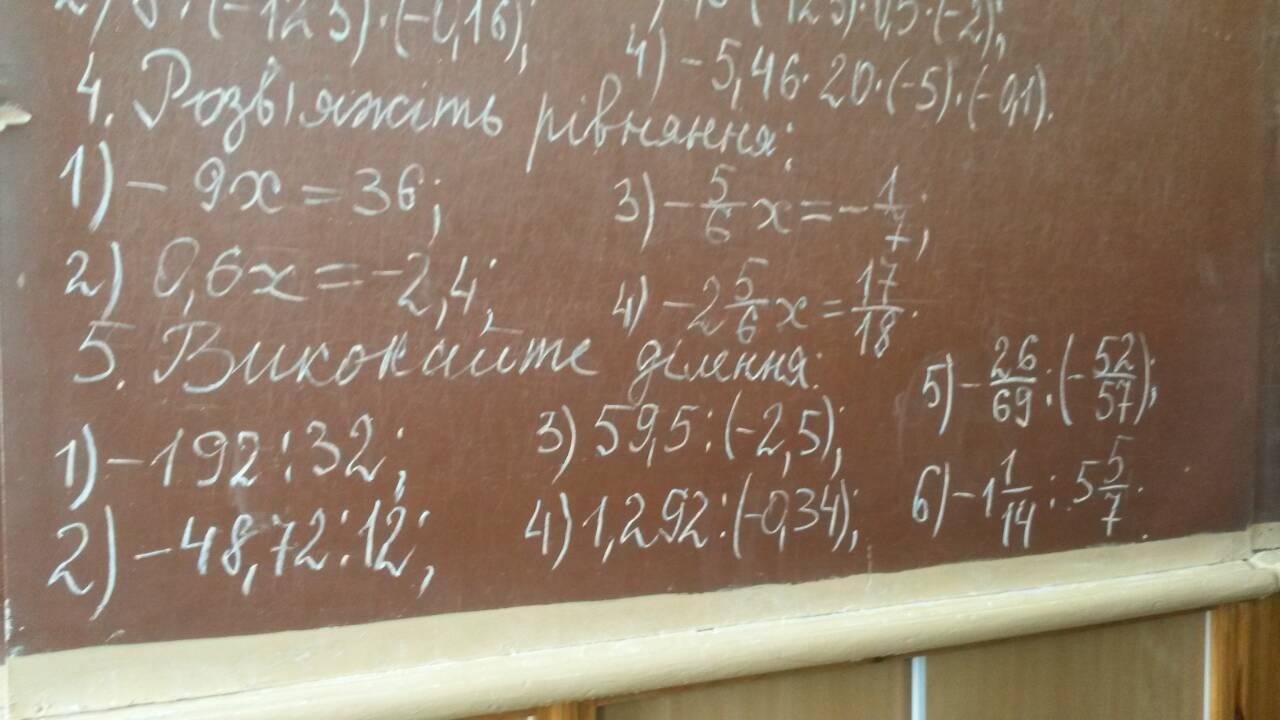 · (-125) · (-0,16);
(-12,5) · 0,5 · (-2);
4) - 5,46 · 20 · (-5) · (-0,1).
4. Розв'яжіть рівняння:
1) - 9x = 36;
3) - 5/6 x = - 1/7;
2) 0,6x = -2,4;
4) - 2 5/6 x = 17/18.
5. Виконайте ділення:
1) - 192 : 32;
3) 59,5 : (-2,5);
5) - 26/69 : (- 52/57);
2) - 48,72 : 12;
4) 1,292 : (-0,34);
6) - 1 1/14 : 5 5/7.